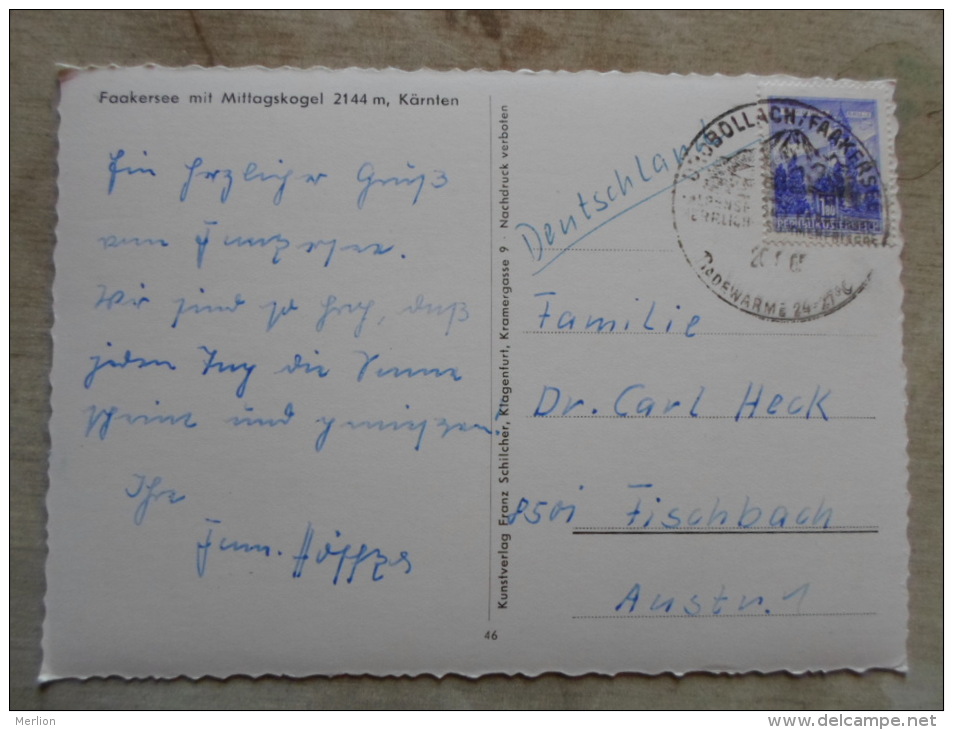 Faakersee mit Mittagskogel 2144 m, Kärnten
Ein herzlicher Gruß
vom
Wir sind so froh, daß
jeden Tag die Sonne
scheint und genießen
Ihre
Fam.
Kunstverlag Franz Schilcher, Klagenfurt, Kramergasse 9 · Nachdruck verboten
46
DROBOLLACH/FAAKERSEE
BADEWÄRME 24-27°C
Deutschland
Familie
Dr. Carl Heck
8501 Fischbach
Austr. 1
Merlion
www.delcampe.net